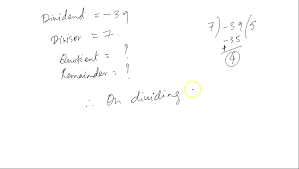 Dividend = -39
Divisor = 7
Quotient = ?
Remainder = ?
7) -39 (5
-35
4
∴ On dividing